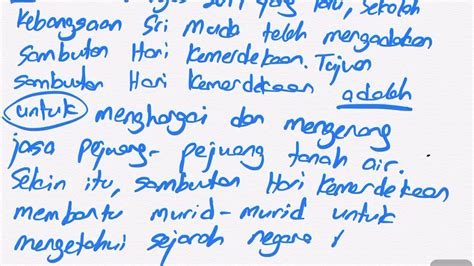 2019 yang lalu, Sekolah
Kebangsaan Sri Muda telah mengadakan
Sambutan Hari Kemerdekaan. Tujuan
Sambutan Hari Kemerdekaan adalah
untuk menghargai dan mengenang
jasa pejuang-pejuang tanah air.
Selain itu, sambutan Hari Kemerdekaan
membantu murid-murid untuk
mengetahui sejarah negara